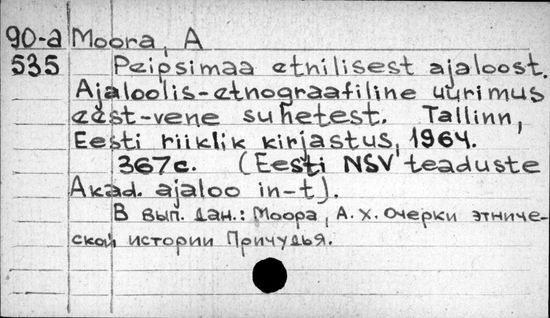 90-a Moora, A
535 Peipsimaa etnilisest ajaloost.
Ajaloolis-etnograafiline uurimus
eest-vene suhetest. Tallinn,
Eesti riiklik kirjastus, 1964.
367c. (Eesti NSV teaduste
Akad. ajaloo in-t).
В вып. дан.: Моора, А.Х. Очерки этниче-
ской истории Причудья.